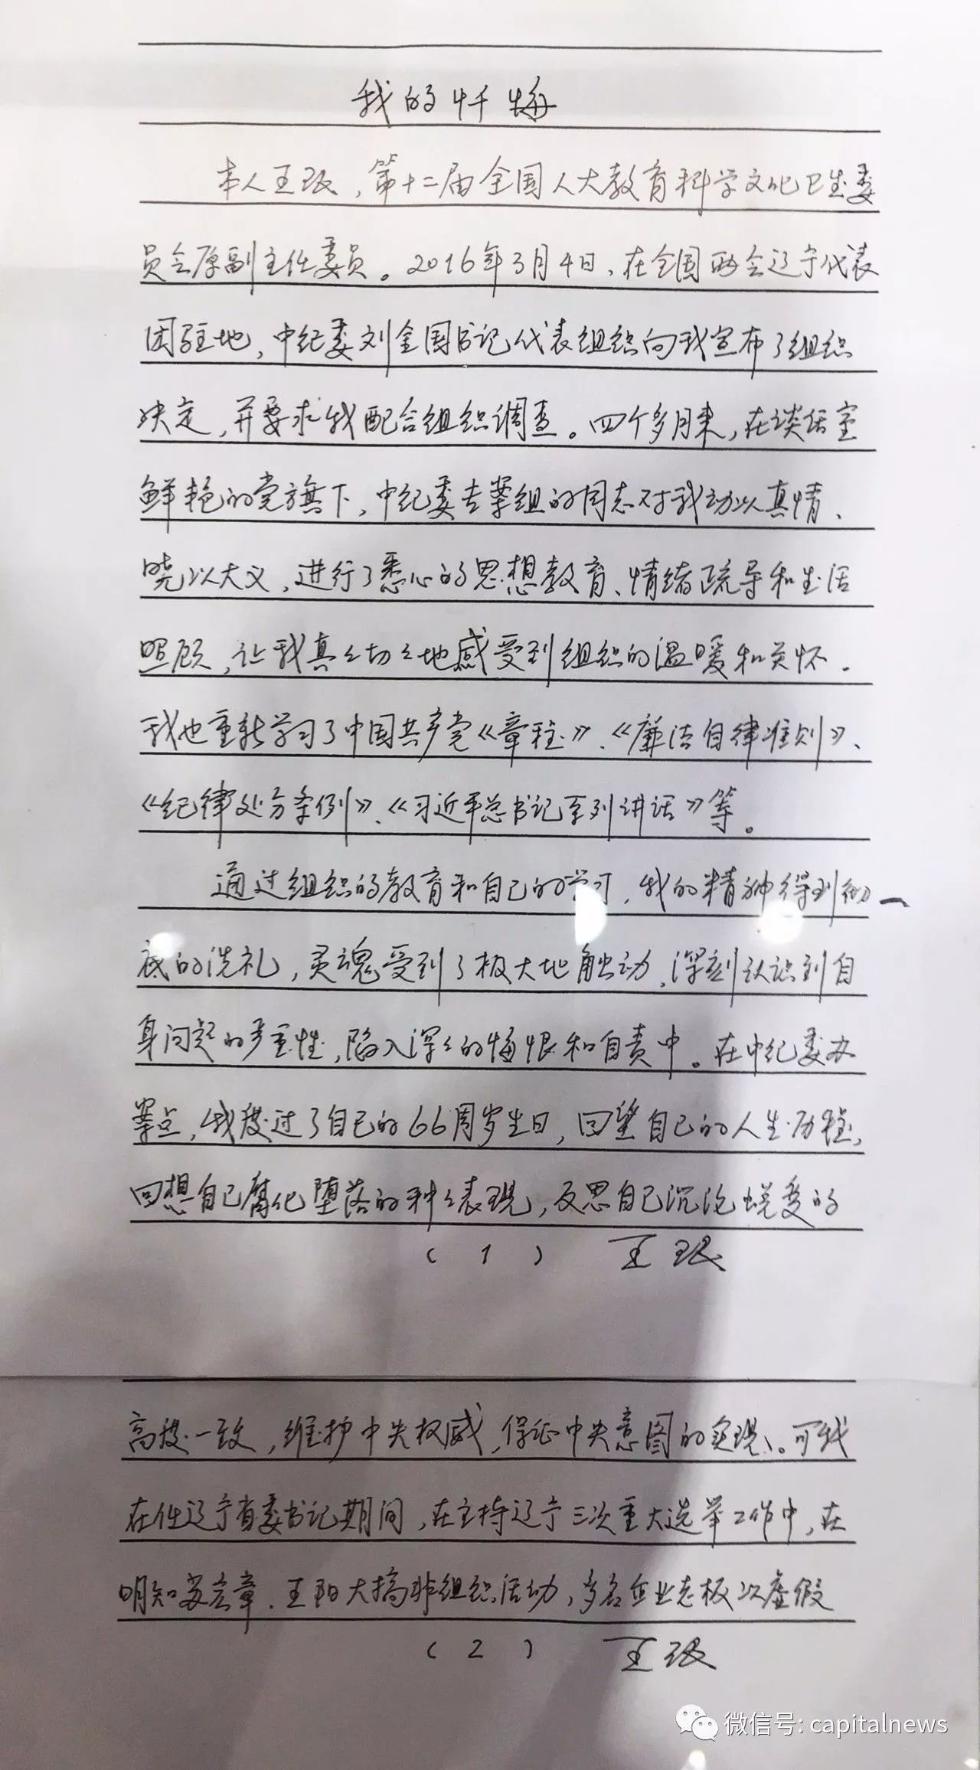 我的忏悔
本人王珉，第十二届全国人大教育科学文化卫生委
员会原副主任委员。2016年3月4日，在全国两会辽宁代表
团驻地，中纪委刘金国书记代表组织向我宣布了组织
决定，并要求我配合组织调查。四个多月来，在谈话室
鲜艳的党旗下，中纪委专案组的同志对我动以真情、
晓以大义，进行了悉心的思想教育、情绪疏导和生活
照顾，让我真真切切地感受到组织的温暖和关怀。
我也重新学习了中国共产党《章程》、《廉洁自律准则》、
《纪律处分条例》、《习近平总书记系列讲话》等。
通过组织的教育和自己的学习，我的精神得到彻
底的洗礼，灵魂受到了极大地触动，深刻认识到自
身问题的严重性，陷入深深的悔恨和自责中。在中纪委办
案点，我度过了自己的66周岁生日，回望自己的人生历程，
回想自己腐化堕落的种种表现，反思自己沉沦蜕变的
(1) 王珉
高度一致，维护中央权威，保证中央意图的实现。可我
在任辽宁省委书记期间，在主持辽宁三次重大选举工作中，在
明知苏宏章、王阳大搞非组织活动，多名企业老板以虚假
(2) 王珉
微信号: capitalnews